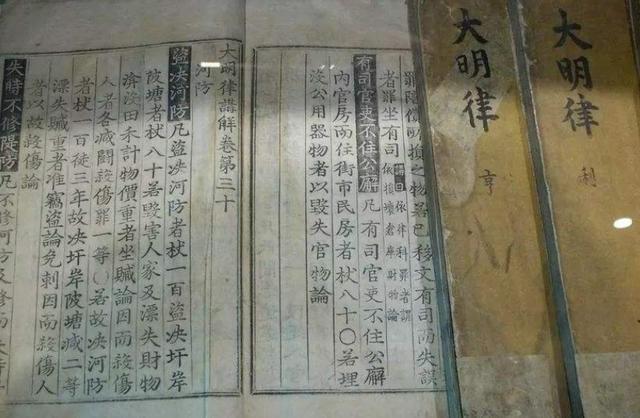 大明律
利
大明律
亨
罪陪償所損之物若已移文有司而失誤
者罪坐有司
講曰依律科罪者謂
依損壞倉庫財物論
有司官吏不住公廨凡有司官吏不住公廨
內官房而住街市民房者杖八十○若埋
沒公用器物者以毀失官物論
大明律講解卷第三十
河防
盜决河防凡盜决河防者杖一百盜决圩岸
陂塘者杖八十若毀害人家及漂失財物
渰沒田禾計物價重者坐贓論因而殺傷
人者各減鬪殺傷罪一等○若故决河防
者杖一百徒三年故决圩岸陂塘減二等
漂失贓重者准竊盜論免刺因而殺傷人
者以故殺傷論
失時不修隄防凡不修河防及修而失時